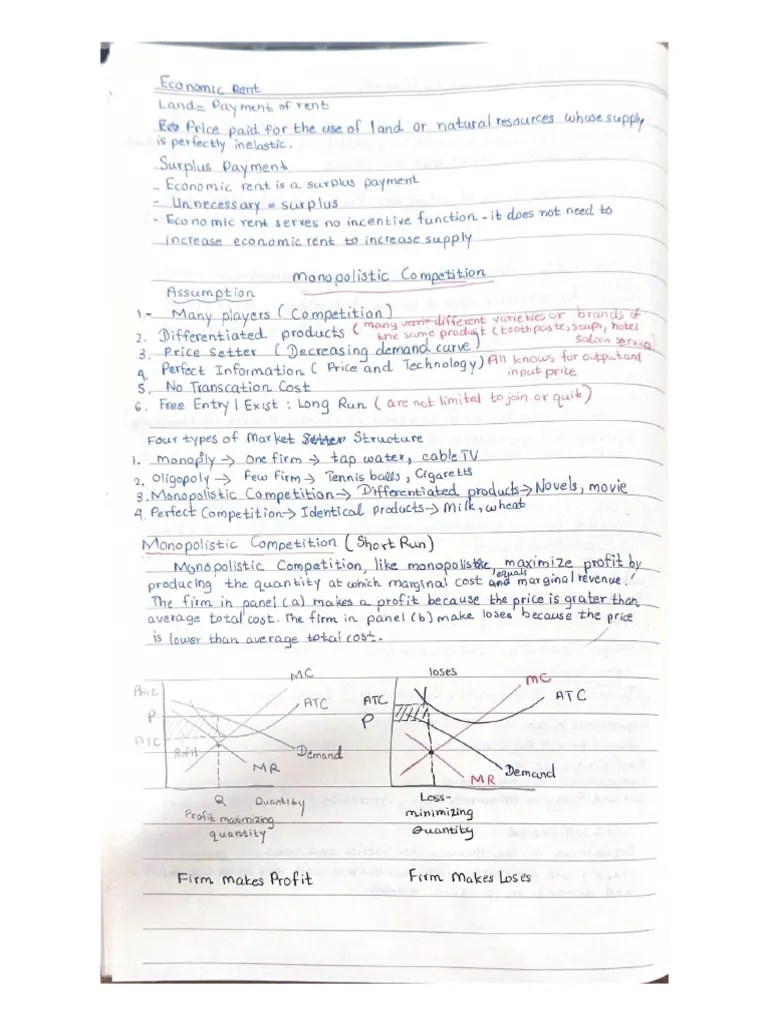 Economic Rent
Land = Payment of rent
Eco Price paid for the use of land or natural resources whose supply
is perfectly inelastic.
Surplus Payment
- Economic rent is a surplus payment
- Unnecessary = surplus
- Economic rent serves no incentive function - it does not need to
increase economic rent to increase supply
Monopolistic Competition
Assumption
1.- Many players (Competition)
2. Differentiated products (many vari- different varieties or brands of
the same product (toothpaste, soap, hotel
saloon service)
3. Price Setter (Decreasing demand curve)
4. Perfect Information (Price and Technology) All knows for output and
input price
5. No Transcation Cost
6. Free Entry / Exist : Long Run (are not limited to join or quit)
Four types of Market Setter Structure
1. monoply → One firm → tap water, cable TV
2. Oligopoly → Few firm → Tennis balls, Cigaretts
3. Monopolistic Competition → Differentiated products → Novels, movie
4. Perfect Competition → Identical products → Milk, wheat
Monopolistic Competition (Short Run)
Monopolistic Competition, like monopolistic, maximize profit by
producing the quantity at which marginal cost and equals marginal revenue.
The firm in panel (a) makes a profit because the price is grater than
average total cost. The firm in panel (b) make loses because the price
is lower than average total cost.
Price
MC
ATC
P
ATC
Profit
Demand
MR
Q Quantity
Profit maximizing
quantity
Firm makes Profit
loses
MC
ATC
ATC
P
Demand
MR
Loss-
minimizing
Quantity
Firm Makes Loses